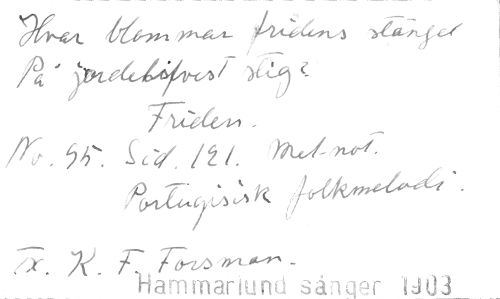 Hvar blommar fridens stängel
På jordelifvets stig?
Friden.
No. 95. Sid. 121. Met not.
Portugisisk folkmelodi.
Tx. K. F. Forsman.
Hammarlund sånger 1903